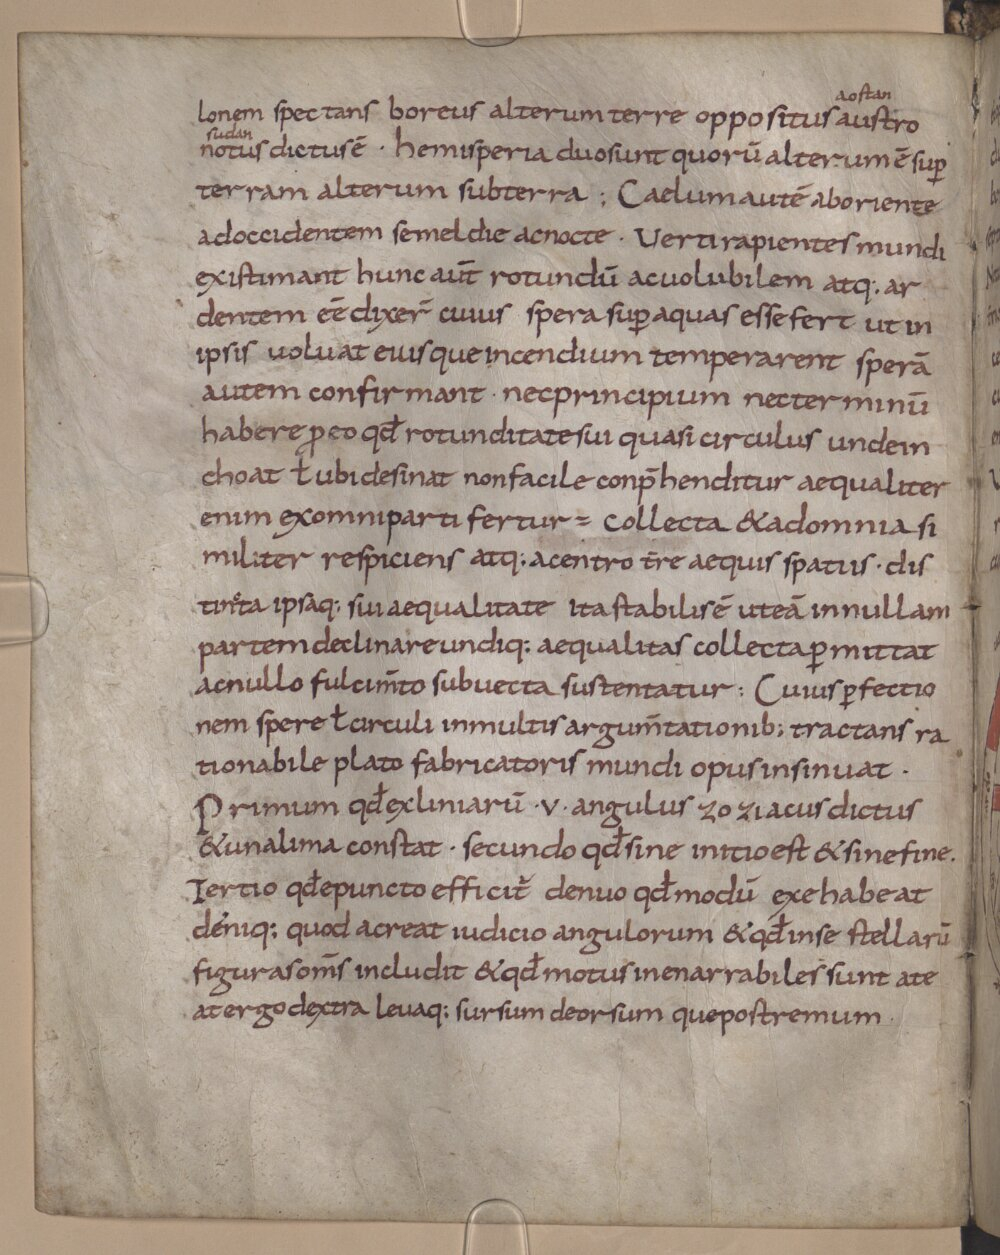 aostan
lonem spectans boreus alterum terre oppositus austro
sudan
notus dictus ē · hemisperia duo sunt quorū alterum ē suꝑ
terram alterum subterra ; Caelum autē ab oriente
ad occidentem semel die ac nocte · Verti rapientes mundi
existimant hunc aut̄ rotundū ac uolubilem atq; ar
dentem eē dixer̄ cuius spera suꝑ aquas esse fert ut in
ipsis uoluat eiusque incendium temperarent sperā
autem confirmant · nec principium nec terminū
habere ꝑ eo qđ rotunditate sui quasi circulus unde in
choat ł ubi desinat non facile conp̄henditur aequaliter
enim ex omni parti fertur = collecta & ad omnia si
militer respiciens atq; a centro t̄re aequis spatiis · dis
tincta ipsaq; sui aequalitate ita stabilis ē ut eā in nullam
partem declinare undiq; aequalitas collecta ꝑmittat
ac nullo fulcim̄to subuecta sustentatur : Cuius ꝑfectio
nem spere ł circuli in multis argum̄tationib; tractans ra
tionabile plato fabricatoris mundi opus insinuat ·
Primum qđ ex liniarū · v · angulus zoziacus dictus
& una lima constat · secundo qđ sine initio est & sine fine.
Tertio qđ e puncto efficit̄ denuo qđ modū exe habeat
déniq; quod acreat iudicio angulorum & qđ in se stellarū
figuras om̄s includit & qđ motus inenarrabiles sunt ate
a tergo dextra leuaq; sursum deorsum que postremum ·